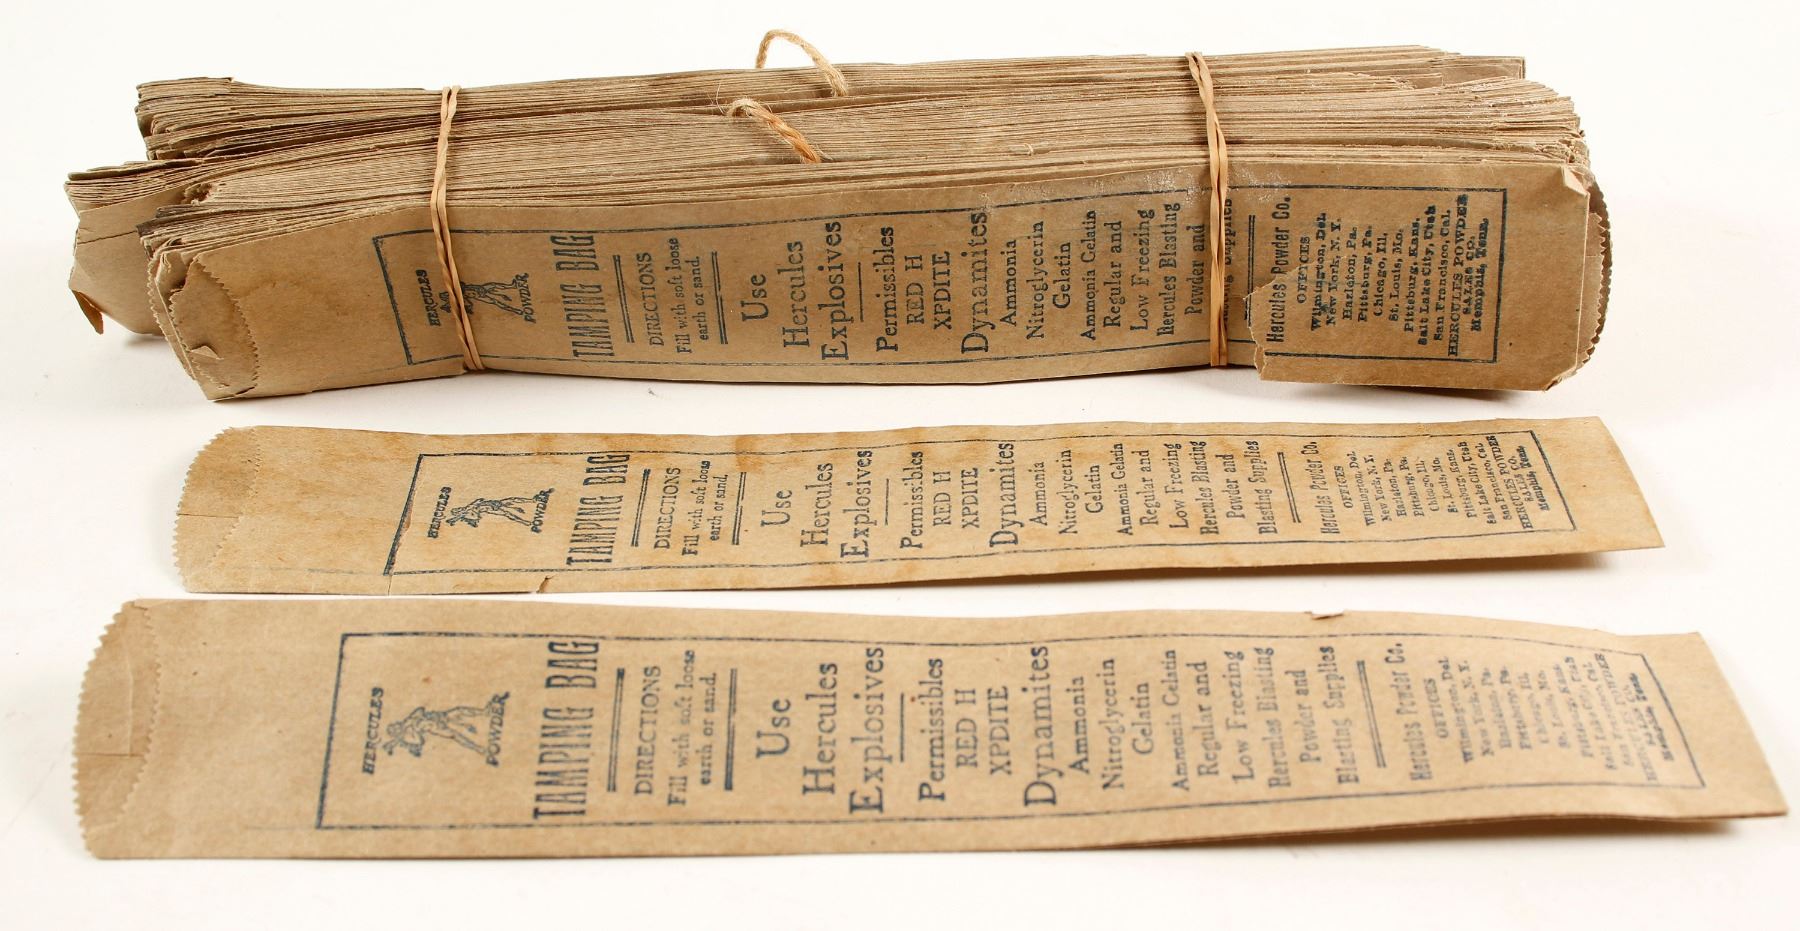 HERCULES
POWDER
TAMPING BAG
DIRECTIONS
Fill with soft loose
earth or sand.
Use
Hercules
Explosives
Permissibles
RED H
XPDITE
Dynamites
Ammonia
Nitroglycerin
Gelatin
Ammonia Gelatin
Regular and
Low Freezing
Hercules Blasting
Powder and
Blasting Supplies
Hercules Powder Co.
OFFICES
Wilmington, Del.
New York, N. Y.
Hazleton, Pa.
Pittsburg, Pa.
Chicago, Ill.
St. Louis, Mo.
Pittsburg, Kans.
Salt Lake City, Utah
San Francisco, Cal.
HERCULES POWDER
SALE CO.
Memphis, Tenn.
HERCULES
POWDER
TAMPING BAG
DIRECTIONS
Fill with soft loose
earth or sand.
Use
Hercules
Explosives
Permissibles
RED H
XPDITE
Dynamites
Ammonia
Nitroglycerin
Gelatin
Ammonia Gelatin
Regular and
Low Freezing
Hercules Blasting
Powder and
Blasting Supplies
Hercules Powder Co.
OFFICES
Wilmington, Del.
New York, N. Y.
Hazleton, Pa.
Pittsburg, Pa.
Chicago, Ill.
St. Louis, Mo.
Pittsburg, Kans.
Salt Lake City, Utah
San Francisco, Cal.
HERCULES POWDER
SALES CO.
Memphis, Tenn.
HERCULES
POWDER
TAMPING BAG
DIRECTIONS
Fill with soft loose
earth or sand.
Use
Hercules
Explosives
Permissibles
RED H
XPDITE
Dynamites
Ammonia
Nitroglycerin
Gelatin
Ammonia Gelatin
Regular and
Low Freezing
Hercules Blasting
Powder and
Blasting Supplies
Hercules Powder Co.
OFFICES
Wilmington, Del.
New York, N. Y.
Hazleton, Pa.
Pittsburg, Pa.
Chicago, Ill.
St. Louis, Mo.
Pittsburg, Kans.
Salt Lake City, Utah
San Francisco, Cal.
HERCULES POWDER
SALES CO.
Memphis, Tenn.